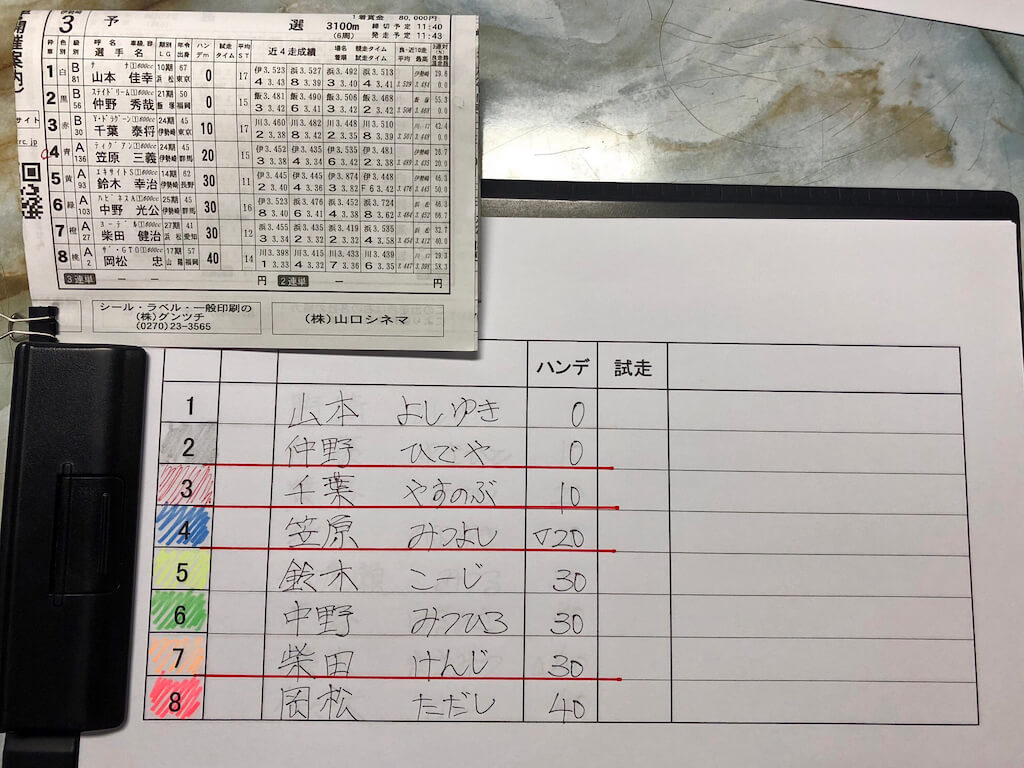 伊勢崎
3 予 選 3100m (6周)
1着賞金 80,000円
締切予定 11:40
発走予定 11:43
枠番 色別 級別 呼名 車級.排 選手名 期別 LG 年令 出身 ハンデm 試走タイム 平均ST 近4走成績
1 白 B 81 山本 佳幸 10期 67 浜松 東京 0 17 伊3.523 浜3.527 浜3.492 浜3.513
4 3.43 8 3.39
2 黒 B 56 仲野 秀哉 21期 50 飯塚 福岡 0 15 飯3.481 飯3.490 飯3.506 飯3.468
3 3.42 6 3.41 3 3.42 2 3.42
3 赤 B 30 V・ドラグーン①600cc 千葉 泰将 24期 45 伊勢崎 東京 10 17 川3.460 川3.482 川3.448 川3.510
2 3.38 8 3.42 2 3.35 8 3.39
4 青 A 136 笠原 三義 24期 44 伊勢崎 群馬 20 15 伊3.452 伊3.435 伊3.535 伊3.481
3 3.38 4 3.34 6 3.41 2 3.38
5 黄 A 93 エキサイトS①600cc 鈴木 幸治 14期 62 伊勢崎 長野 30 11 伊3.445 伊3.445 伊3.874 伊3.448
2 3.40 4 3.36 3 3.82 F6 3.42
6 緑 A 103 ハピネスA①600cc 中野 光公 25期 45 伊勢崎 群馬 30 16 伊3.523 伊3.476 飯3.452 飯3.724
8 3.40 6 3.41 4 3.38 8 3.62
7 橙 A 27 ヨーデル①600cc 柴田 健治 27期 41 浜松 愛知 30 12 浜3.455 浜3.435 浜3.419 浜3.535
3 3.34 2 3.32 2 3.35 4 3.58
8 桃 A 2 ザ・GTO①600cc 岡松 忠 17期 57 山陽 福岡 40 14 川3.398 川3.415 川3.433 川3.439
1 3.33 4 3.32 7 3.36 6 3.35
3連単 — — 円 2連単 — 円
シール・ラベル・一般印刷の
(株)グンツチ
(0270)23-3565
(株)山口シネマ
開催案内
サイト
rc.jp
ハンデ 試走
1 山本 よしゆき 0
2 仲野 ひでや 0
3 千葉 やすのぶ 10
4 笠原 みつよし ▽20
5 鈴木 こーじ 30
6 中野 みつひろ 30
7 柴田 けんじ 30
8 岡松 ただし 40